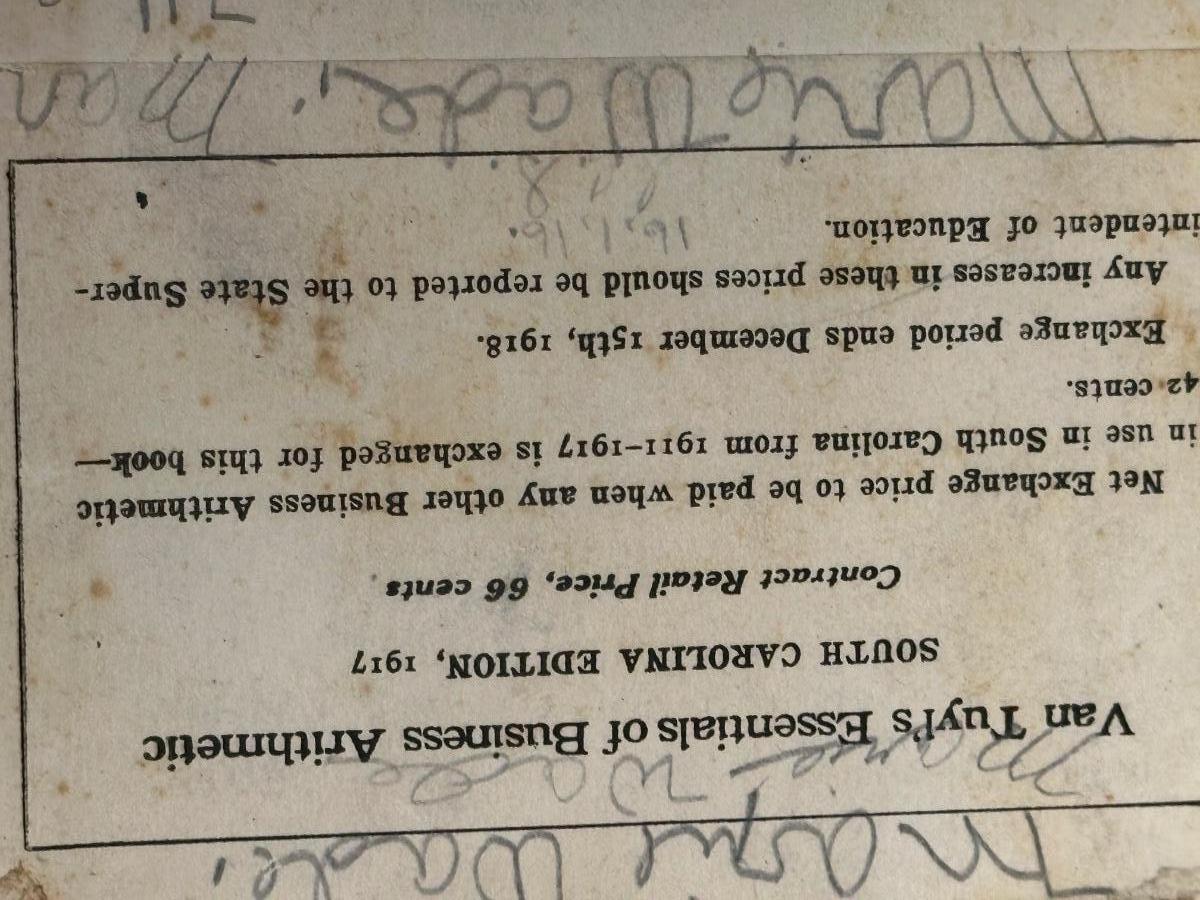 Marie Wade.
Marie Wade
Van Tuyl's Essentials of Business Arithmetic
SOUTH CAROLINA EDITION, 1917
Contract Retail Price, 66 cents
Net Exchange price to be paid when any other Business Arithmetic
in use in South Carolina from 1911–1917 is exchanged for this book—
42 cents.
Exchange period ends December 15th, 1918.
Any increases in these prices should be reported to the State Super-
intendent of Education.
Marie Wade,